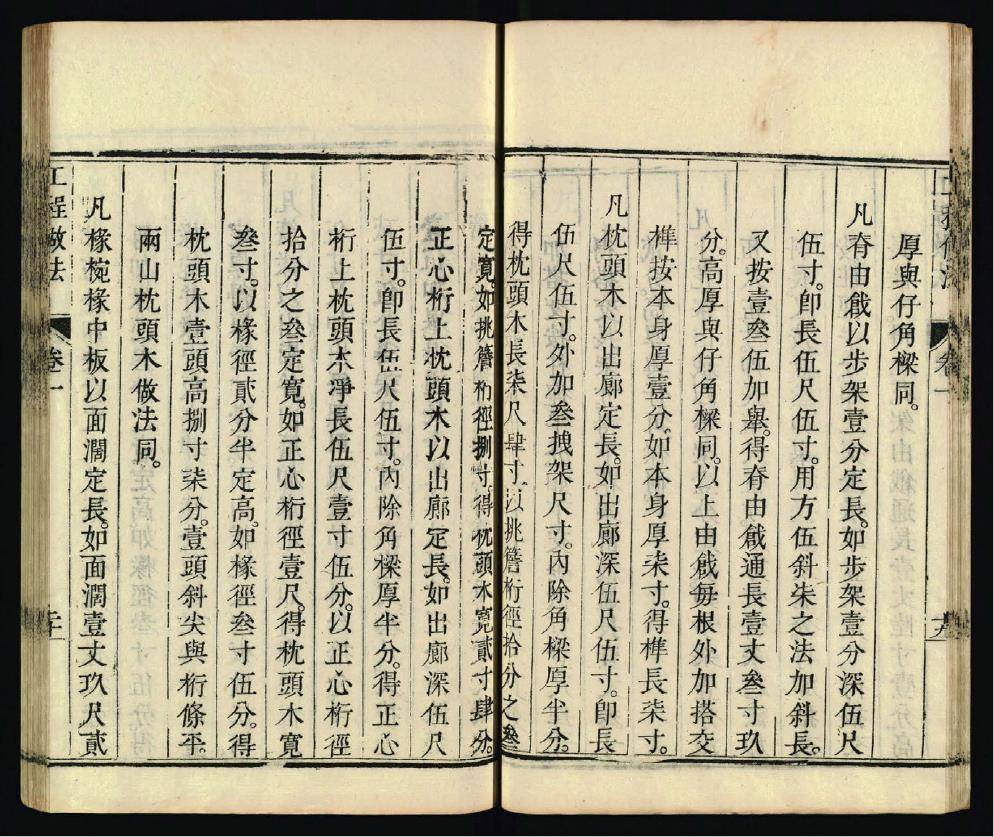 厚與仔角樑同。
凡脊由戧以步架壹分定長。如步架壹分深伍尺
伍寸。卽長伍尺伍寸。用方伍斜柒之法加斜長。
又按壹叁伍加舉。得脊由戧通長壹丈叁寸玖
分。高厚與仔角樑同。以上由戧每根外加搭交
榫按本身厚壹分。如本身厚柒寸。得榫長柒寸。
凡枕頭木以出廊定長。如出廊深伍尺伍寸。卽長
伍尺伍寸。外加叁拽架尺寸。內除角樑厚半分。
得枕頭木長柒尺肆寸。以挑簷桁徑拾分之叁
定寬。如挑簷桁徑捌寸。得枕頭木寬貳寸肆分。
正心桁上枕頭木以出廊定長。如出廊深伍尺
伍寸。卽長伍尺伍寸。內除角樑厚半分。得正心
桁上枕頭木淨長伍尺壹寸伍分。以正心桁徑
拾分之叁定寬。如正心桁徑壹尺。得枕頭木寬
叁寸。以椽徑貳分半定高。如椽徑叁寸伍分。得
枕頭木壹頭高捌寸柒分。壹頭斜尖與桁條平。
兩山枕頭木做法同。
凡椽椀椽中板以面濶定長。如面濶壹丈玖尺貳
工程做法
卷一